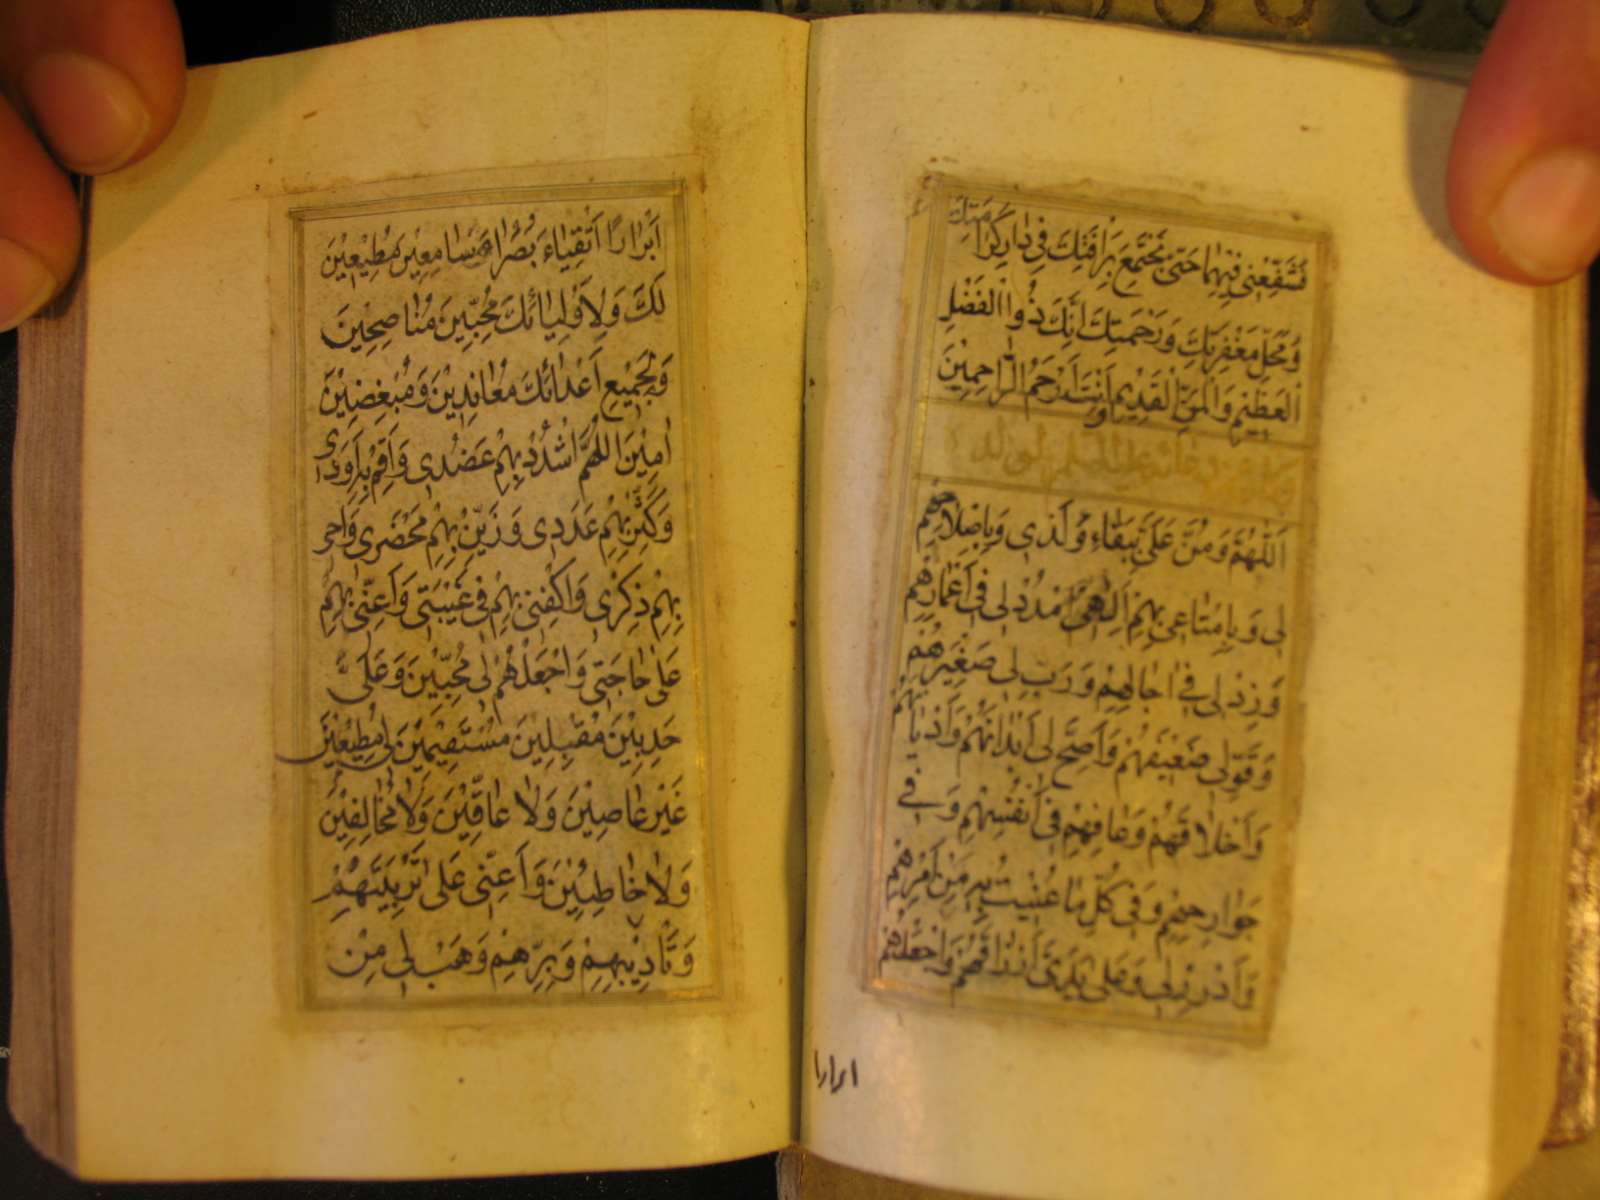 فَشَفِّعْنِي فِيهِمَا حَتّٰى نَجْتَمِعَ بِرَأفَتِكَ فِي دَارِ كَرَامَتِكَ
وَمَحَلِّ مَغْفِرَتِكَ وَرَحْمَتِكَ اِنَّكَ ذُوا الْفَضْلِ
الْعَظِيْمِ وَالْمَنِّ الْقَدِيْمِ وَاَنْتَ اَرْحَمُ الرَّاحِمِيْنَ
عليه السلم لولده
اَللّٰهُمَّ وَمُنَّ عَلَيَّ بِبَقَاءِ وُلْدِي وَبِاِصْلَاحِهِمْ
لِي وَبِامْتَاعِي بِهِمْ اِلٰهِي امْدُدْ لِي فِي اَعْمَارِهِمْ
وَزِدْ لِي فِي اٰجَالِهِمْ وَرَبِّ لِي صَغِيْرَهُمْ
وَقَوِّ لِي ضَعِيْفَهُمْ وَاَصِحَّ لِي اَبْدَانَهُمْ وَاَدْيَانَهُمْ
وَاَخْلَاقَهُمْ وَعَافِهِمْ فِي اَنْفُسِهِمْ وَفِي
جَوَارِحِهِمْ وَفِي كُلِّ مَا عُنِيْتُ بِهِ مِنْ اَمْرِهِمْ
وَاَدْرِرْ لِي وَعَلٰى يَدَيَّ اَرْزَاقَهُمْ وَاجْعَلْهُمْ
ابرارا
اَبْرَارًا اَتْقِيَاءَ بُصَرَاءَ سَامِعِيْنَ مُطِيْعِيْنَ
لَكَ وَلِاَوْلِيَائِكَ مُحِبِّيْنَ مُنَاصِحِيْنَ
وَلِجَمِيْعِ اَعْدَائِكَ مُعَانِدِيْنَ وَمُبْغِضِيْنَ
اٰمِيْنَ اَللّٰهُمَّ اشْدُدْ بِهِمْ عَضُدِي وَاَقِمْ بِهِمْ اَوَدِي
وَكَثِّرْ بِهِمْ عَدَدِي وَزَيِّنْ بِهِمْ مَحْضَرِي وَاَحْيِ
بِهِمْ ذِكْرِي وَاكْفِنِي بِهِمْ فِي غَيْبَتِي وَاَعِنِّي بِهِمْ
عَلٰى حَاجَتِي وَاجْعَلْهُمْ لِي مُحِبِّيْنَ وَعَلَيَّ
حَدِبِيْنَ مُقْبِلِيْنَ مُسْتَقِيْمِيْنَ لِي مُطِيْعِيْنَ
غَيْرَ عَاصِيْنَ وَلَا عَاقِّيْنَ وَلَا مُخَالِفِيْنَ
وَلَا خَاطِئِيْنَ وَاَعِنِّي عَلٰى تَرْبِيَتِهِمْ
وَتَأدِيْبِهِمْ وَبِرِّهِمْ وَهَبْ لِي مِنْ